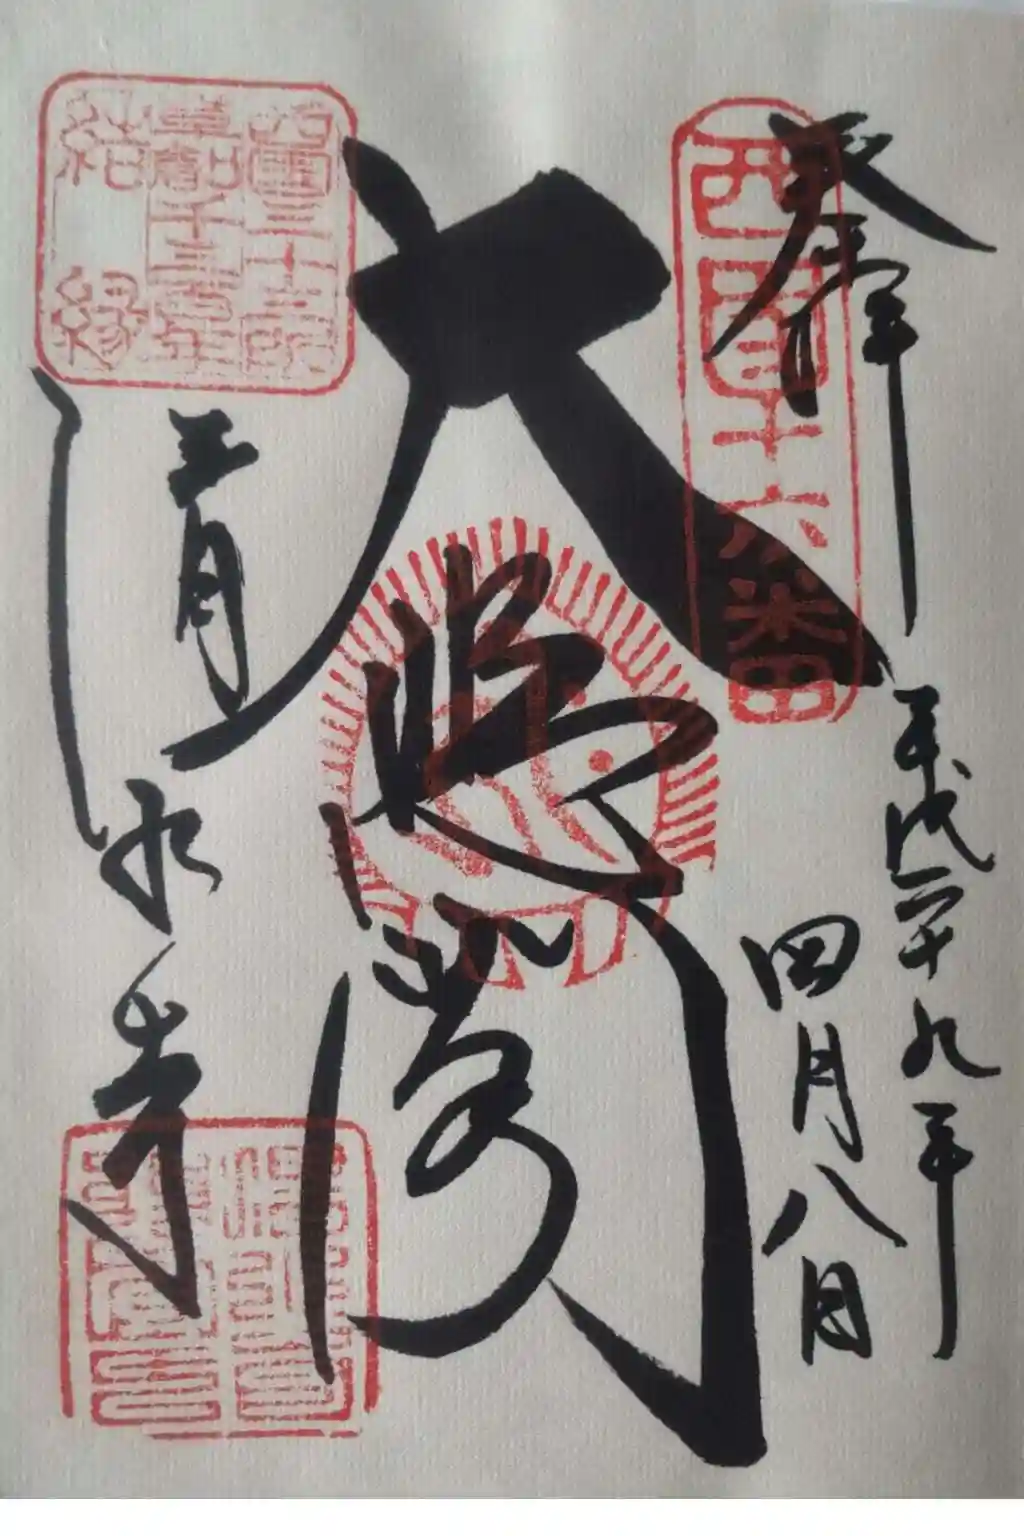 奉拝
西国十六番
平成二十九年
四月八日
大悲閣
西国三十三所
草創千三百年
結縁
清水寺